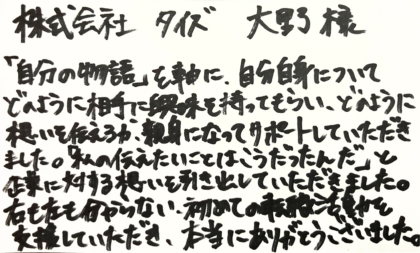 株式会社 タイズ 大野様
「自分の物語」を軸に、自分自身について
どのように相手に興味を持ってもらい、どのように
想いを伝えるか、親身になってサポートしていただき
ました。「私の伝えたいことはこうだったんだ」と
企業に対する想いを引き出していただきました。
右も左も分からない、初めての転職活動を
支援していただき、本当にありがとうございました。